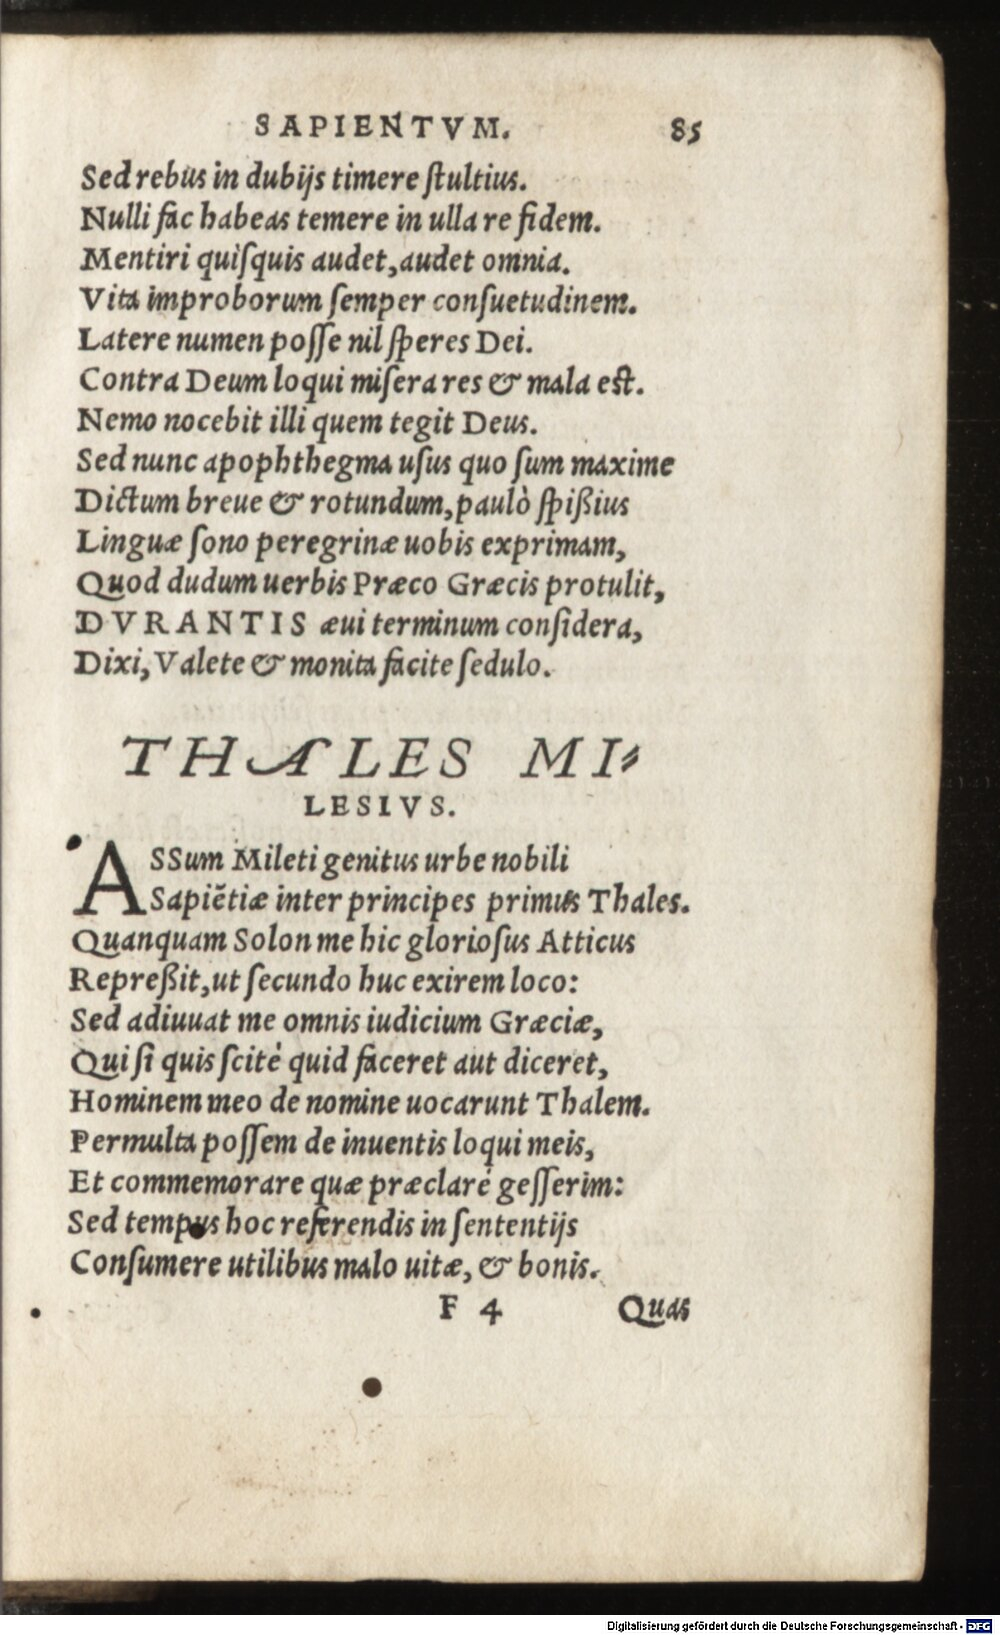 SAPIENTVM. 85
Sed rebus in dubijs timere ſtultius.
Nulli fac habeas temere in ulla re fidem.
Mentiri quiſquis audet, audet omnia.
Vita improborum ſemper conſuetudinem.
Latere numen poſſe nil ſperes Dei.
Contra Deum loqui miſera res & mala est.
Nemo nocebit illi quem tegit Deus.
Sed nunc apophthegma uſus quo ſum maxime
Dictum breue & rotundum, paulò ſpißius
Linguæ ſono peregrinæ uobis exprimam,
Quod dudum uerbis Præco Græcis protulit,
DVRANTIS æui terminum conſidera,
Dixi, Valete & monita facite ſedulo.
THALES MI⸗
LESIVS.
ASSum Mileti genitus urbe nobili
Sapiẽtiæ inter principes primus Thales.
Quanquam Solon me hic glorioſus Atticus
Repreßit, ut ſecundo huc exirem loco:
Sed adiuuat me omnis iudicium Græciæ,
Qui ſi quis ſcitè quid faceret aut diceret,
Hominem meo de nomine uocarunt Thalem.
Permulta poſſem de inuentis loqui meis,
Et commemorare quæ præclarè geſſerim:
Sed tempus hoc referendis in ſententijs
Conſumere utilibus malo uitæ, & bonis.
F 4 Quas
Digitalisierung gefördert durch die Deutsche Forschungsgemeinschaft - DFG